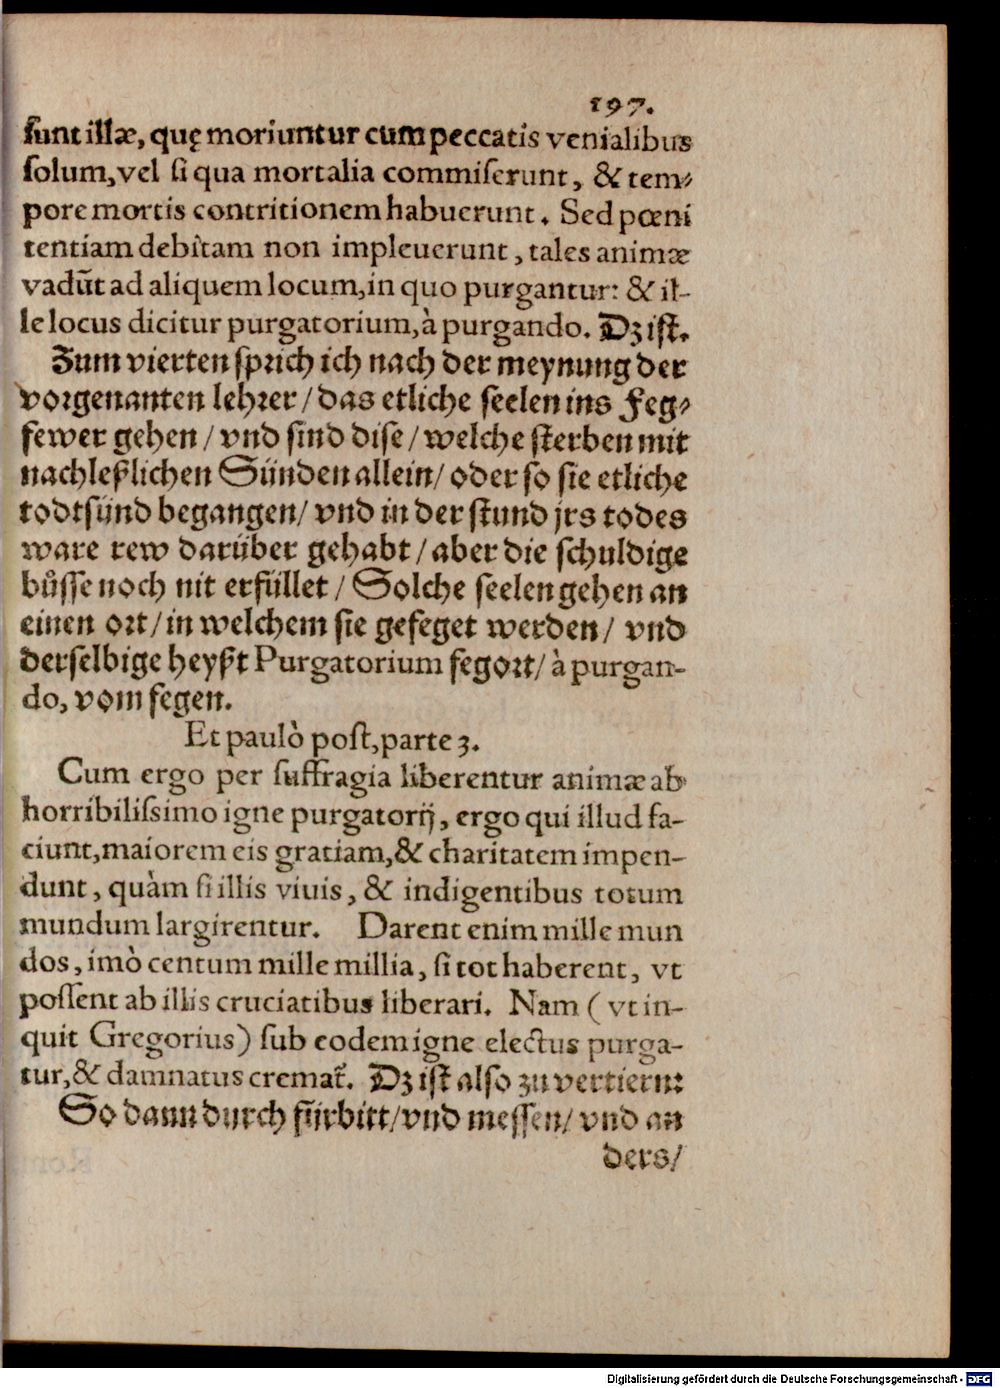 197.
sunt illæ, quę moriuntur cum peccatis venialibus
solum, vel si qua mortalia commiserunt, & tem-
pore mortis contritionem habuerunt. Sed pœni
tentiam debitam non impleuerunt, tales animæ
vadūt ad aliquem locum, in quo purgantur: & il-
le locus dicitur purgatorium, à purgando. Dz ist.
Zum vierten sprich ich nach der meynung der
vorgenanten lehrer / das etliche seelen ins Feg-
fewer gehen / vnd sind dise / welche sterben mit
nachleßlichen Sünden allein / oder so sie etliche
todtsünd begangen / vnd in der stund jrs todes
ware rew darüber gehabt / aber die schuldige
bůsse noch nit erfüllet / Solche seelen gehen an
einen ort / in welchem sie gefeget werden / vnd
derselbige heyßt Purgatorium fegort / à purgan-
do, vom fegen.
Et paulò post, parte 3.
Cum ergo per suffragia liberentur animæ ab
horribilissimo igne purgatorij, ergo qui illud fa-
ciunt, maiorem eis gratiam, & charitatem impen-
dunt, quàm si illis viuis, & indigentibus totum
mundum largirentur. Darent enim mille mun
dos, imò centum mille millia, si tot haberent, vt
possent ab illis cruciatibus liberari. Nam (vt in-
quit Gregorius) sub eodem igne electus purga-
tur, & damnatus cremat̄. Dz ist also zu vertiern:
So dann durch fürbitt / vnd messen / vnd an
ders /
Digitalisierung gefördert durch die Deutsche Forschungsgemeinschaft - DFG